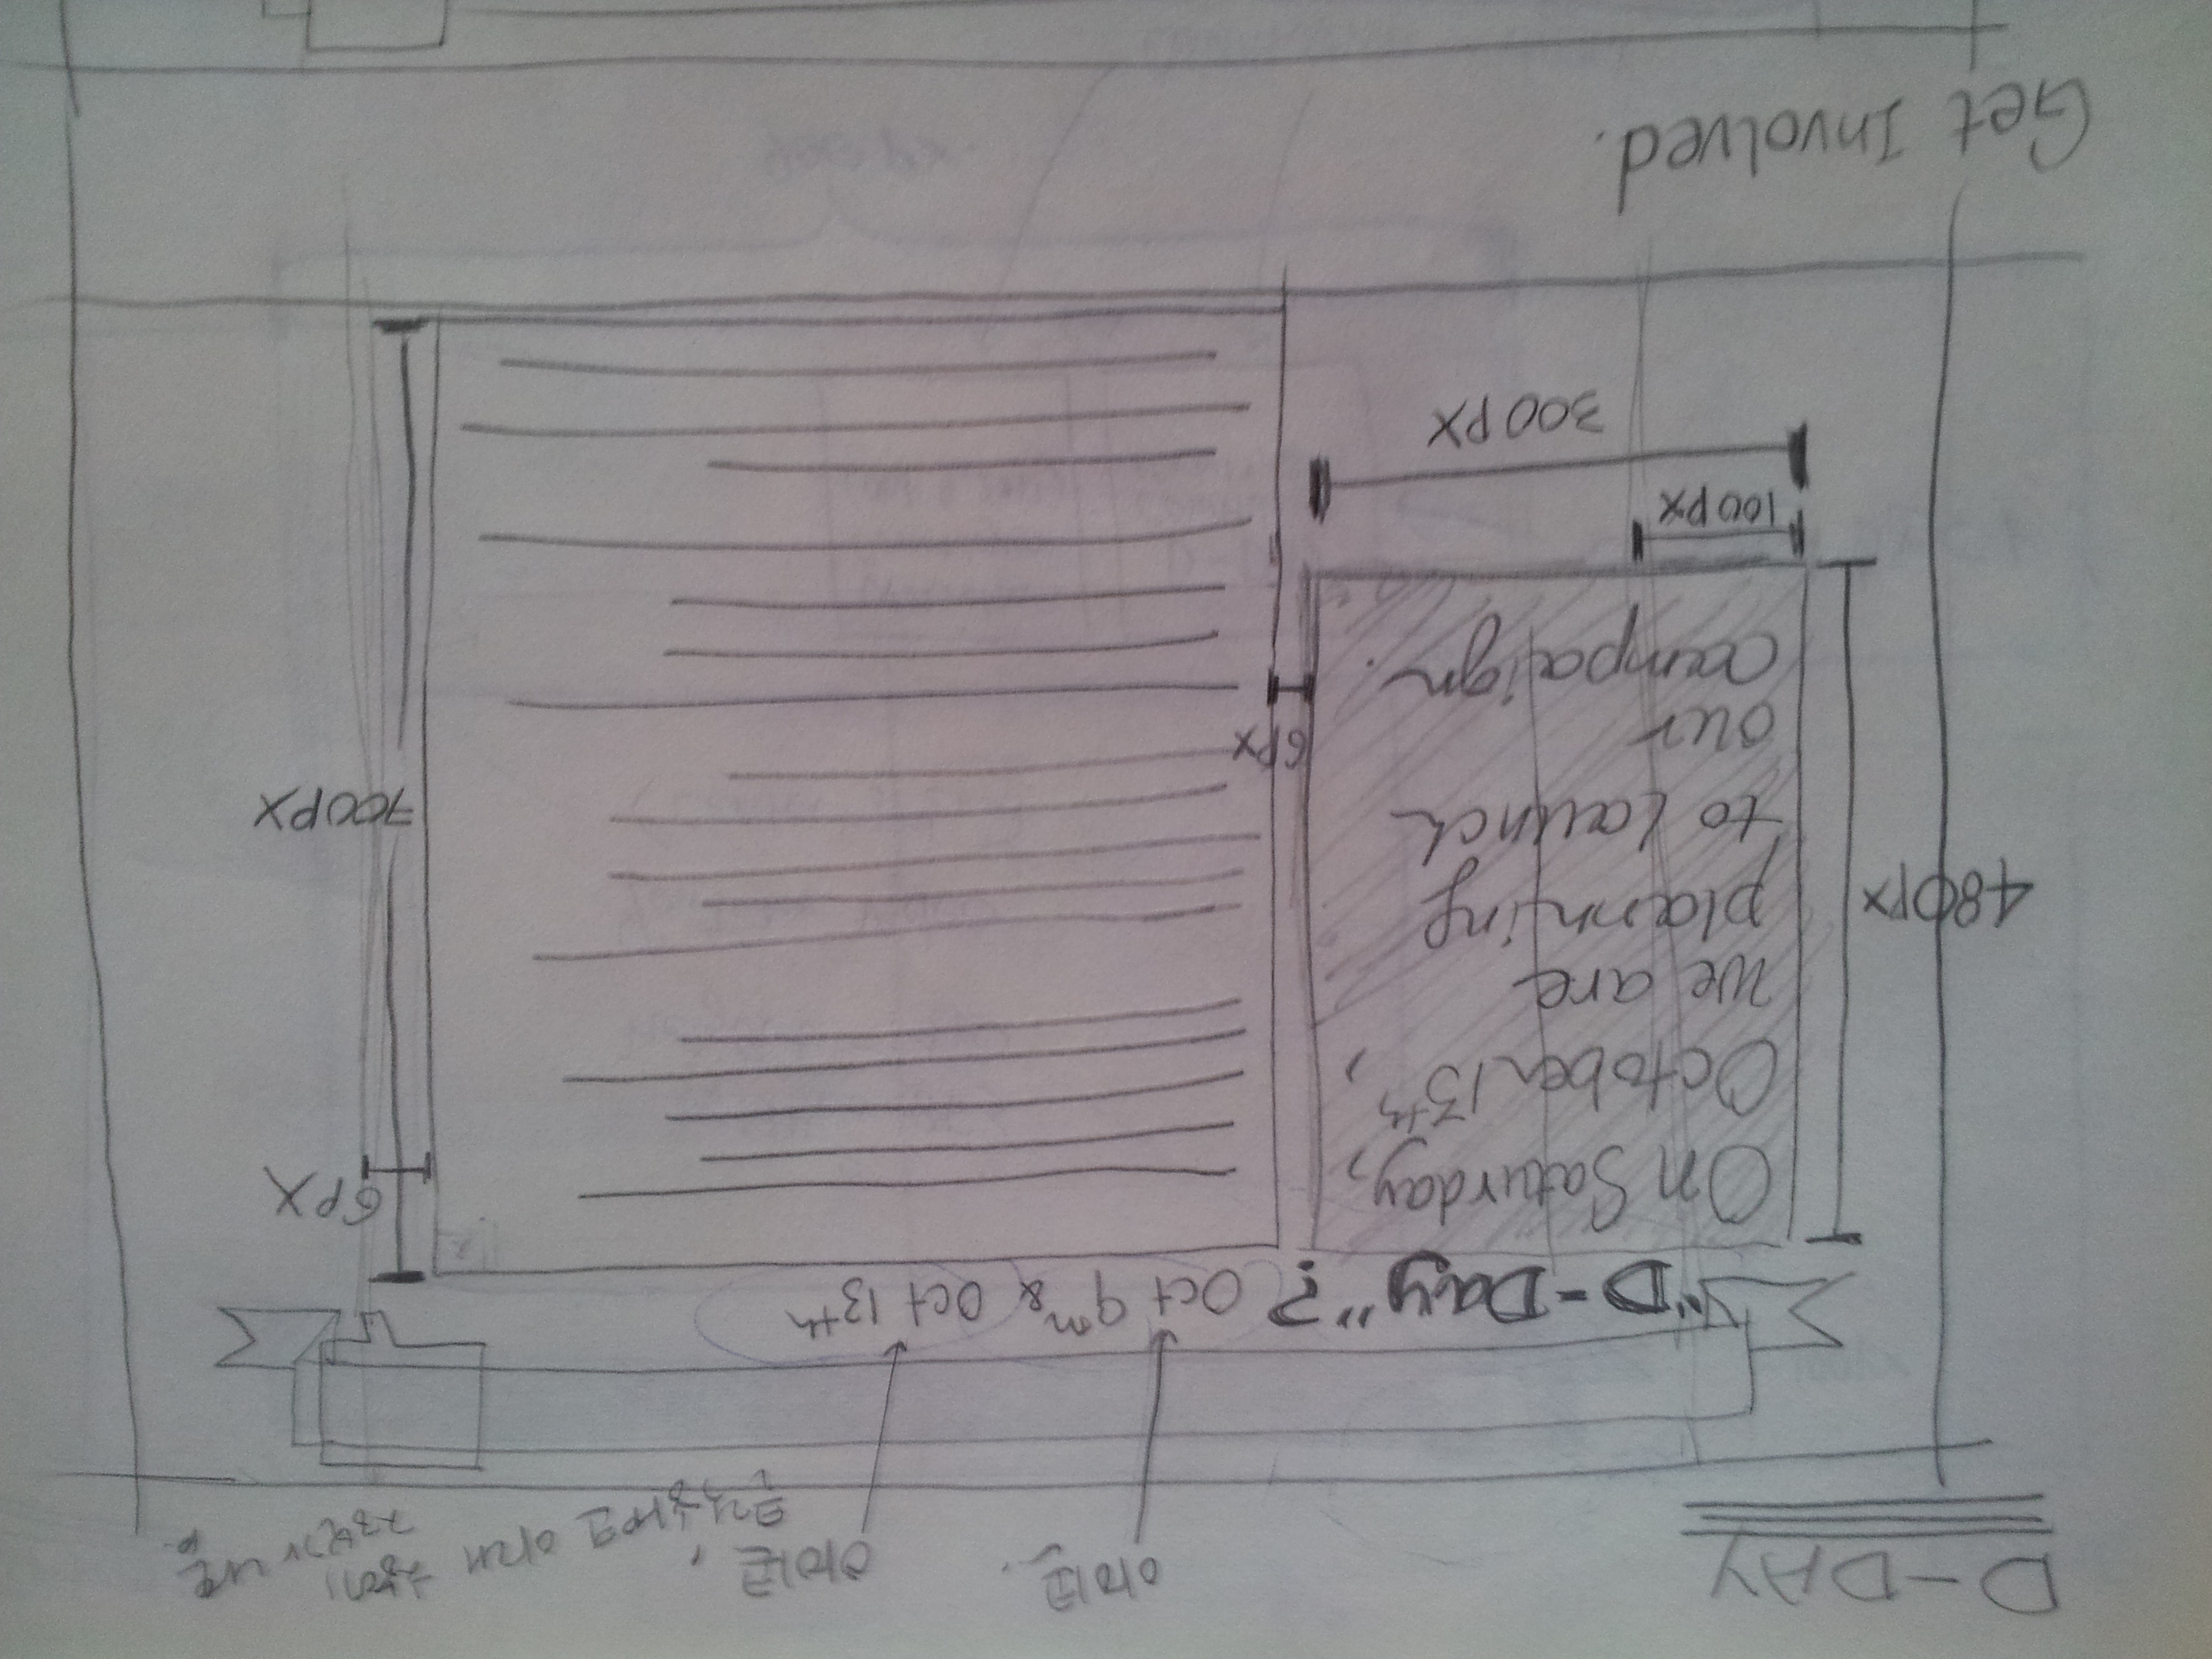 D-DAY
아이콘.
아이콘,
클릭하면 아래 창에
정보가 나옴.
"D-Day"? Oct 9th & Oct 13th
On Saturday,
October 13th,
we are
planning
to launch
our
campaign.
480PX
6PX
6PX
700PX
100PX
300PX
Get Involved.